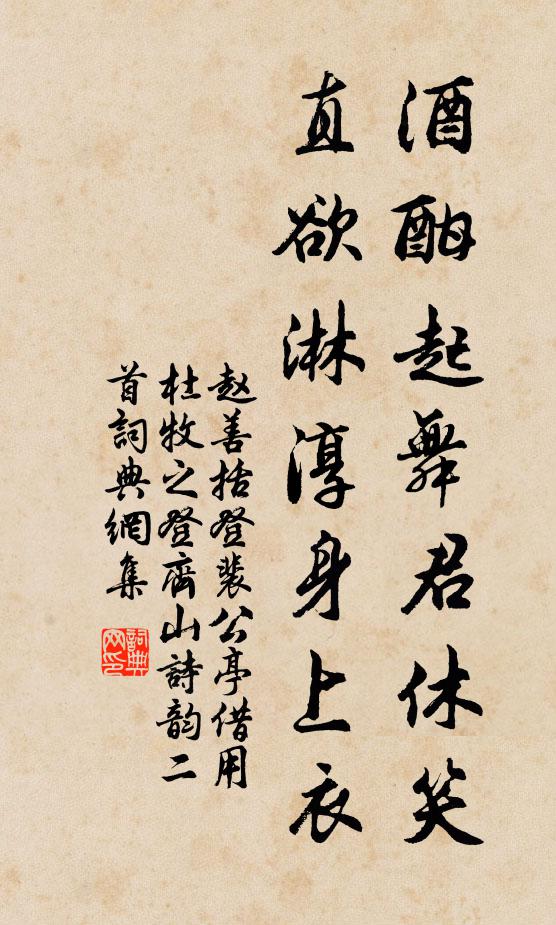 酒酣起舞君休笑
直欲淋淳身上衣
赵善括登裴公亭借用
杜牧之登齊山詩韵二
首詞典網集
詞典
网印